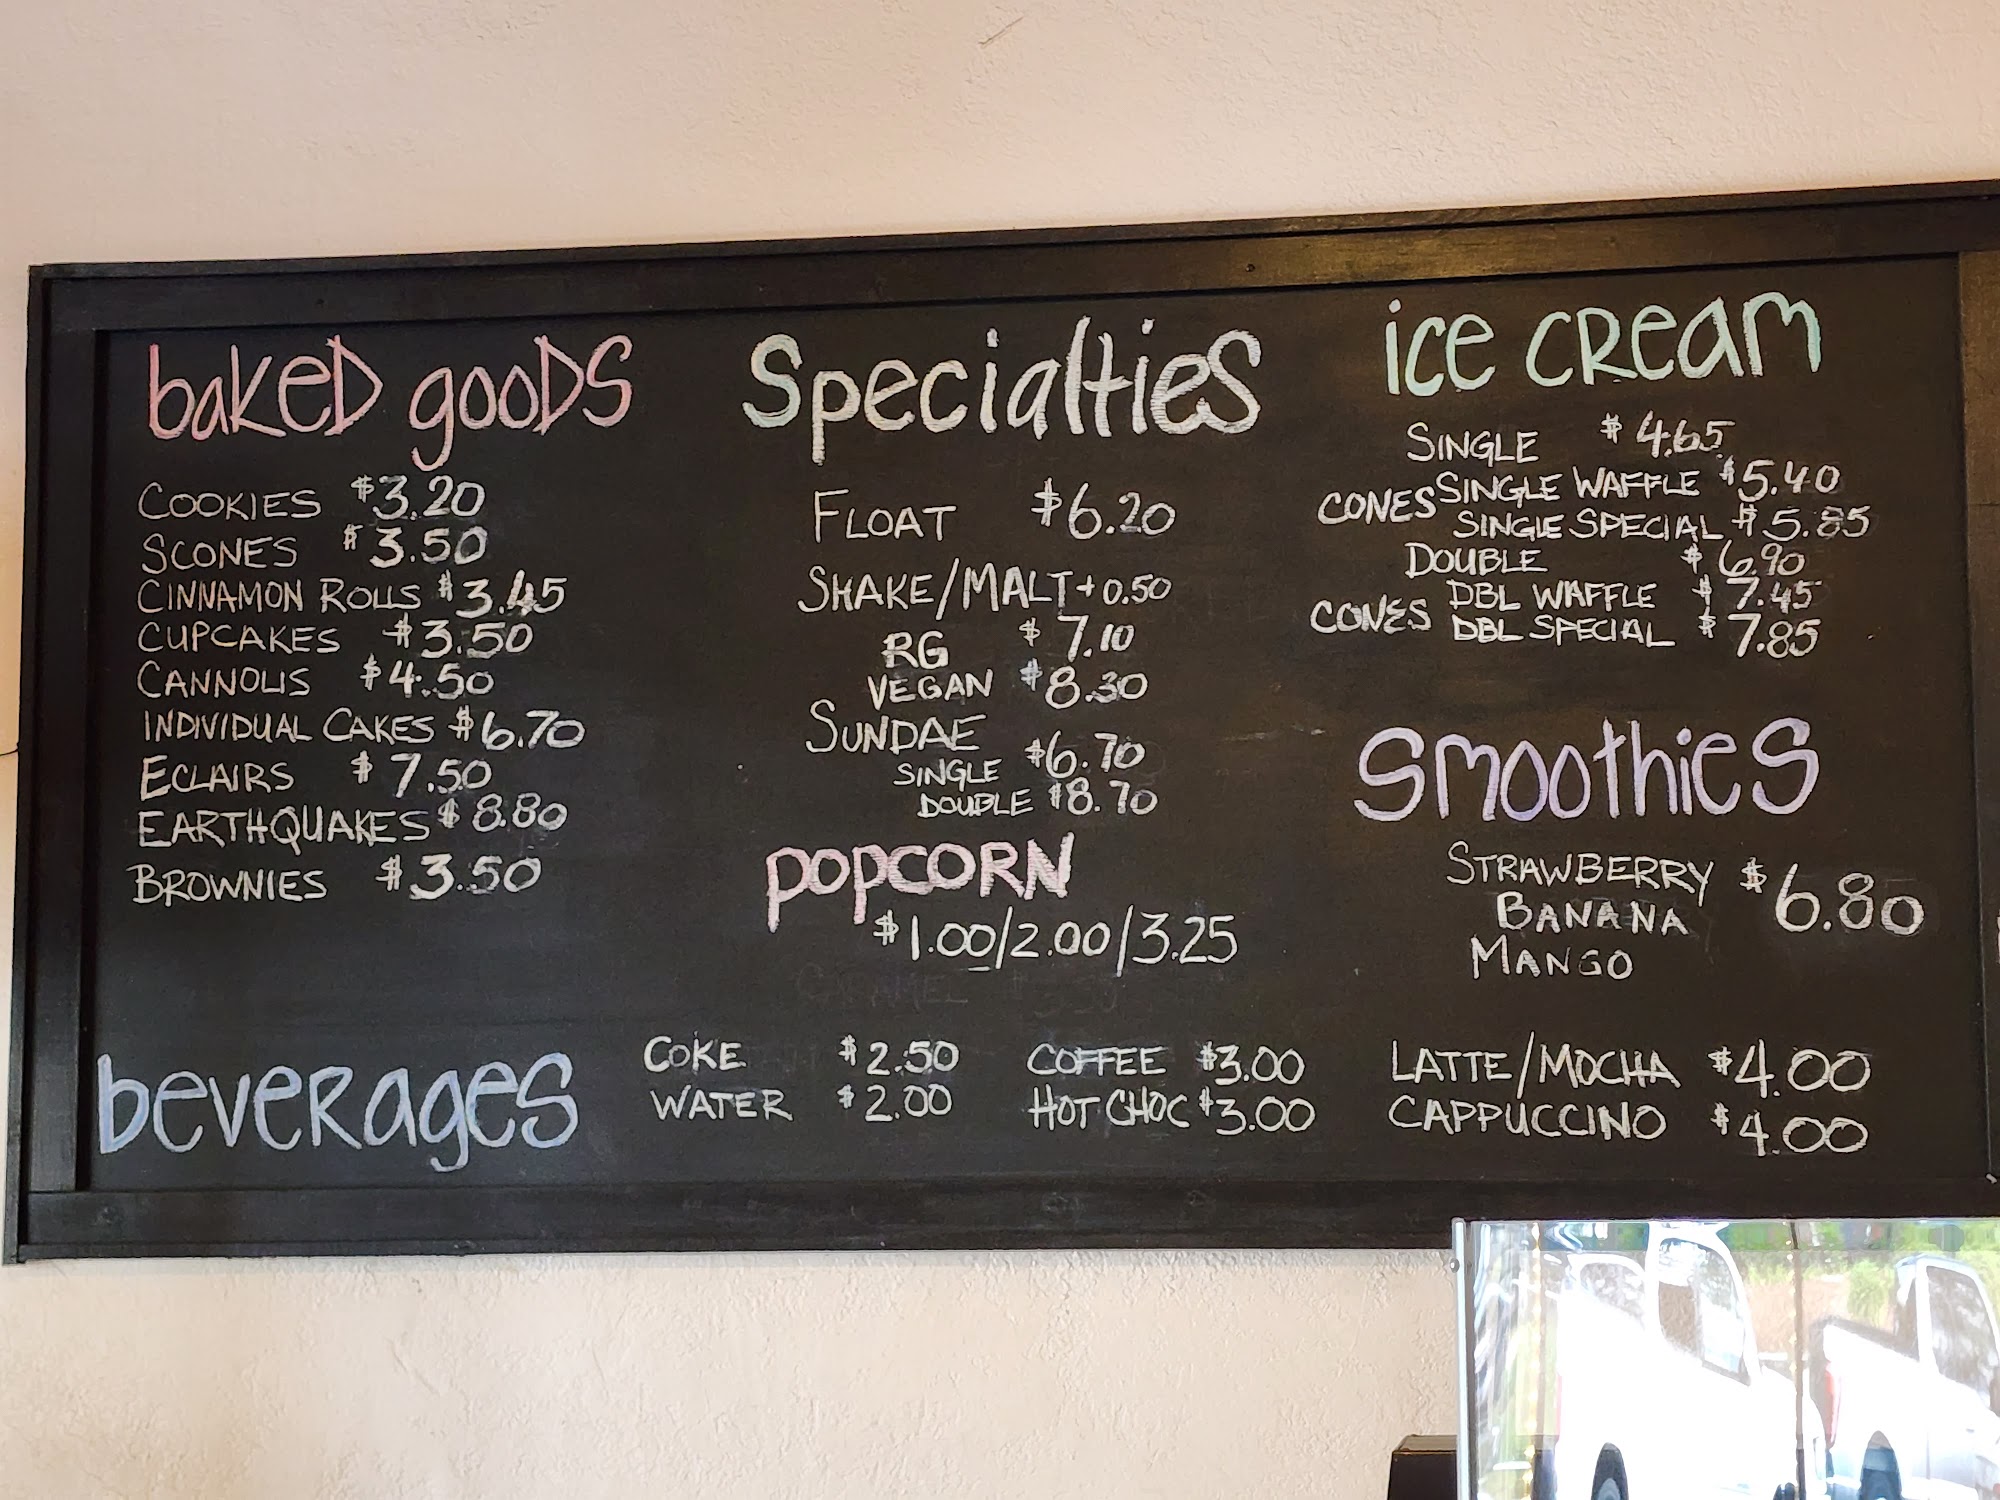 baked goods
Cookies $3.20
Scones $3.50
Cinnamon Rolls $3.45
Cupcakes $3.50
Cannolis $4.50
Individual Cakes $6.70
Eclairs $7.50
Earthquakes $8.80
Brownies $3.50
Specialties
Float $6.20
Shake/Malt +0.50
RG $7.10
Vegan $8.30
Sundae
Single $6.70
Double $8.70
popcorn
$1.00/2.00/3.25
Caramel
ice cream
Single $4.65
Cones Single Waffle $5.40
Single Special $5.85
Double $6.90
Cones Dbl Waffle $7.45
Dbl Special $7.85
smoothies
Strawberry $6.80
Banana
Mango
beverages
Coke $2.50
Water $2.00
Coffee $3.00
Hot Choc $3.00
Latte/Mocha $4.00
Cappuccino $4.00